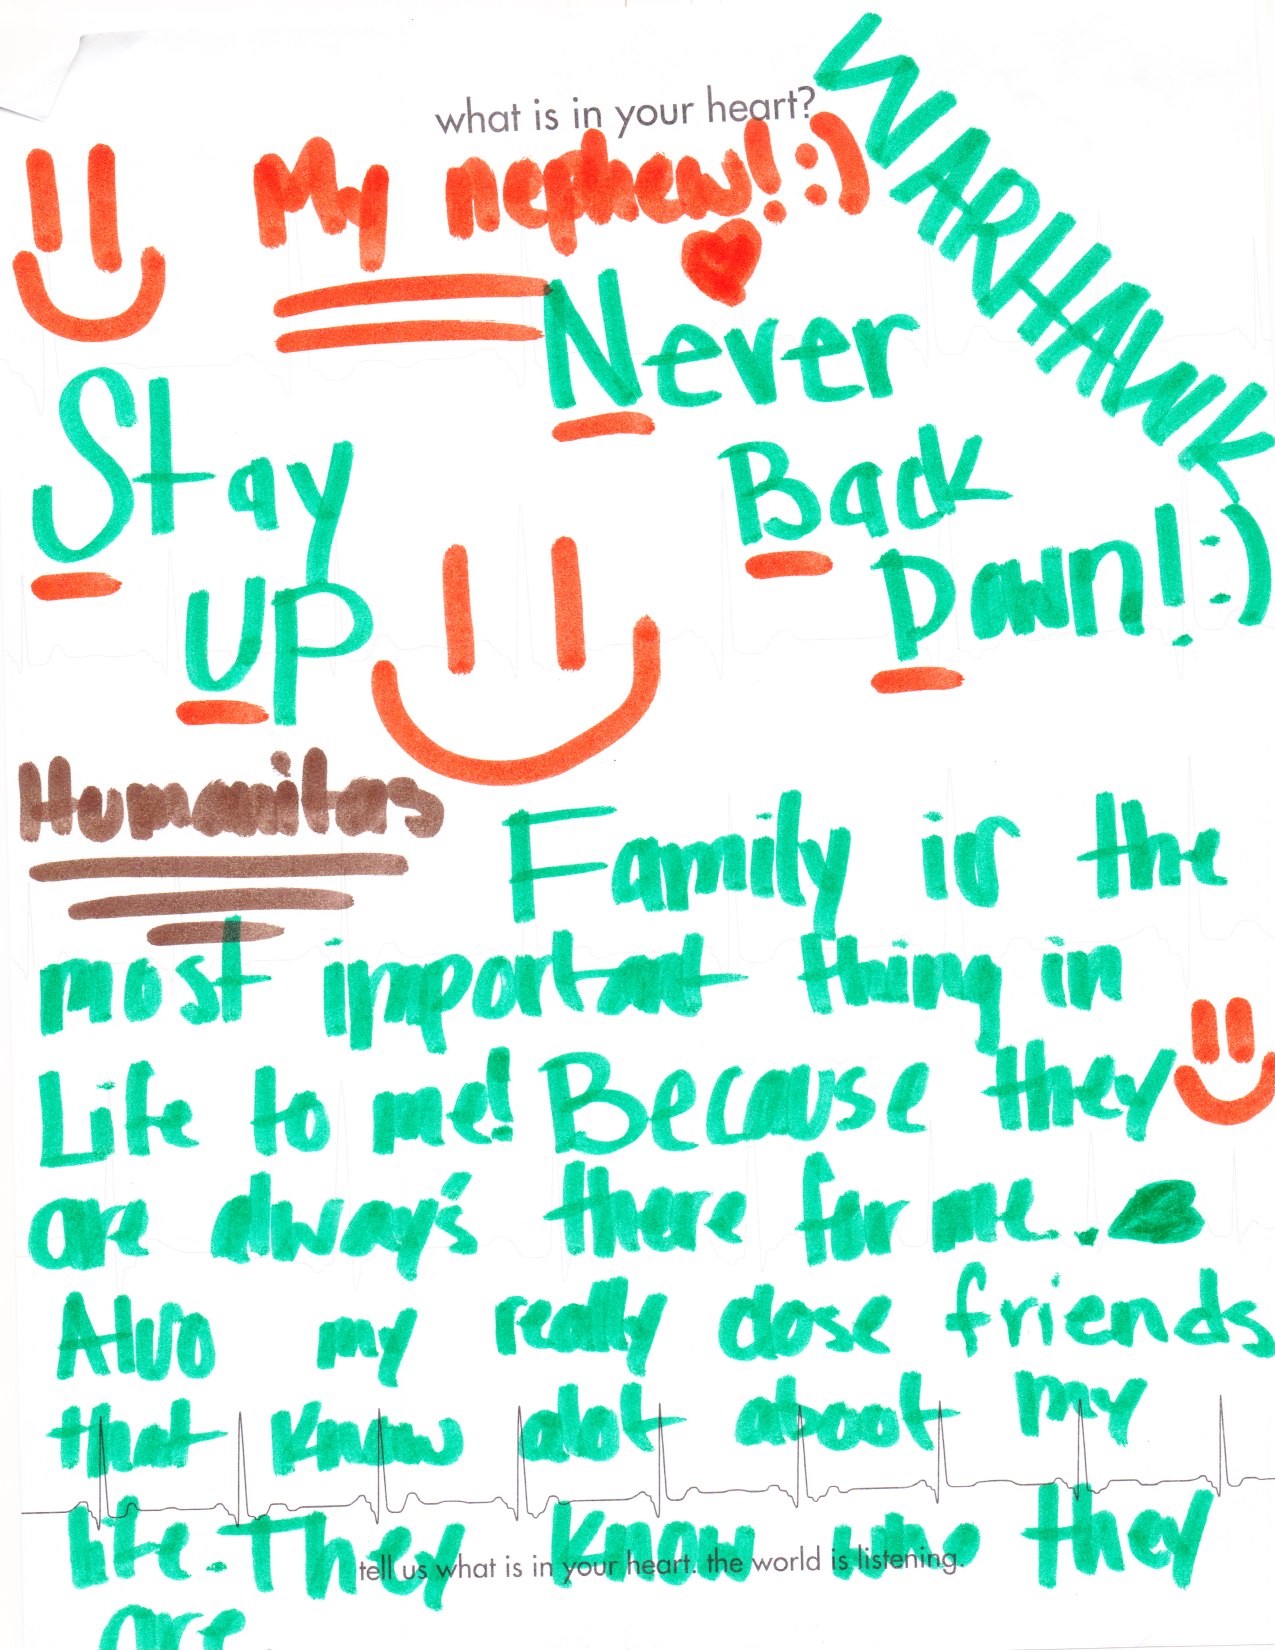 what is in your heart?
WARHAWK
My nephew! :)
Never
Back
Down! :)
Stay
UP
Humanitas
Family is the
most important thing in
Life to me! Because they
are always there for me.
Also my really close friends
that know alot aboot my
life. They know who they
are
tell us what is in your heart. the world is listening.